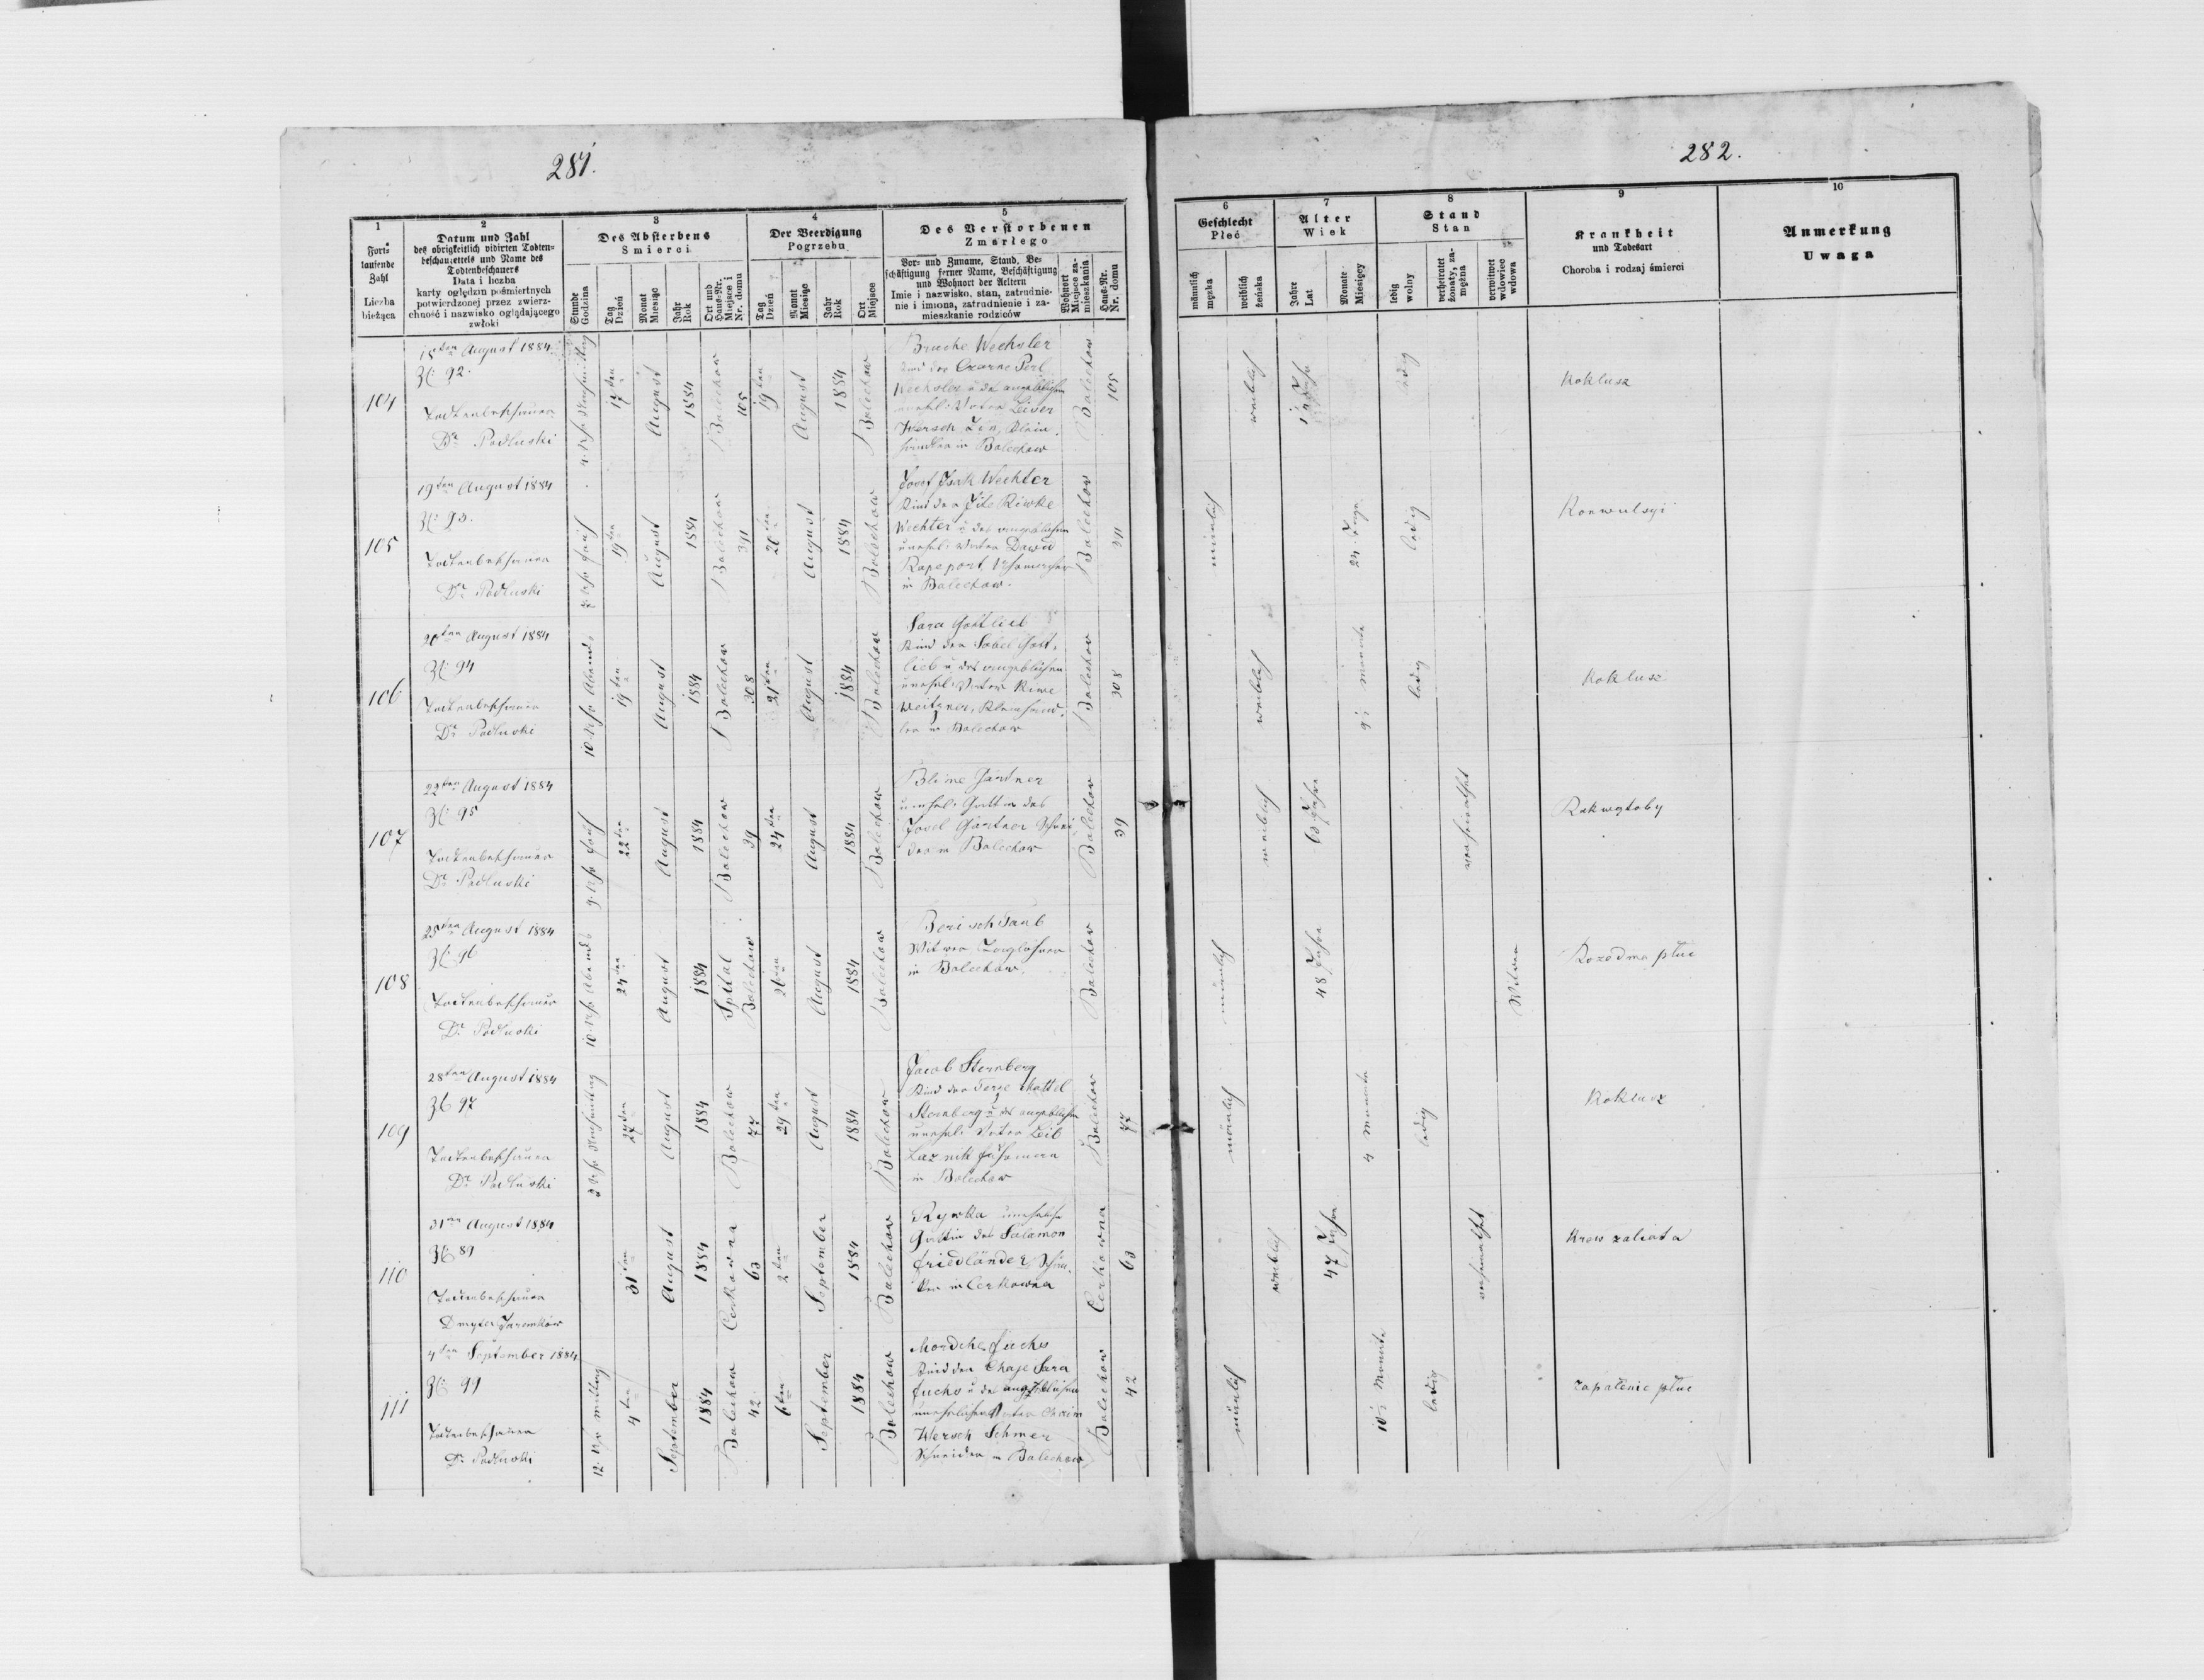 281.
282.
1
Fort=
laufende
Zahl
Liczba
bieżąca
2
Datum und Zahl
des obrigkeitlich vidirten Todten=
beschauzettels und Name des
Todtenbeschauers
Data i liczba
karty oględzin pośmiertnych
potwierdzonej przez zwierz-
chność i nazwisko oglądającego
zwłoki
3
Des Absterbens
Smierci
Stunde
Godzina
Tag
Dzień
Monat
Miesiąc
Jahr
Rok
Ort und
Haus-Nr.
Miejsce i
Nr. domu
4
Der Beerdigung
Pogrzebu
Tag
Dzień
Monat
Miesiąc
Jahr
Rok
Ort
Miejsce
5
Des Verstorbenen
Zmarłego
Vor- und Zuname, Stand, Be-
schäftigung ferner Name, Beschäftigung
und Wohnort der Aeltern
Imie i nazwisko, stan, zatrudnie-
nie i imiona, zatrudnienie i za-
mieszkanie rodziców
Wohnort
Miejsce za-
mieszkania
Haus-Nr.
Nr. domu
6
Geschlecht
Płeć
männlich
męzka
weiblich
żeńska
7
Alter
Wiek
Jahre
Lat
Monate
Miesięcy
8
Stand
Stan
ledig
wolny
verheiratet
żonaty, za-
mężna
verwitwet
wdowiec
wdowa
9
Krankheit
und Todesart
Choroba i rodzaj śmierci
10
Anmerkung
Uwaga
104
18ten August 1884
Zl: 92.
Todtenbeschauer
Dr. Podluski
17ten
August
1884
Bolechow
105
19ten
August
1884
Bolechow
Bruche Wechsler
Kind der Czarne Perl
Wechsler u des angeblichen
unehel: Vater Leiser
Hersch Zin, Klein
händler in Bolechow
Bolechow
105
weiblich
ledig
Koklusz
105
19ten August 1884
Zl: 93.
Todtenbeschauer
Dr. Podluski
7 Uhr früh
19ten
August
1884
Bolechow
391
20ten
August
1884
Bolechow
Josef Isak Wechter
Kind der Jite Riwke
Wechter u des angeblichen
unehel: Vater Dawid
Rapeport,
in Bolechow.
Bolechow
391
männlich
24 Tage
ledig
Konwulsyi
106
20ten August 1884
Zl: 94
Todtenbeschauer
Dr. Podluski
10 Uhr Abends
19ten
August
1884
Bolechow
308
21ten
August
1884
Bolechow
Sara Gottlieb
Kind der Sobel Gott=
lieb u des angeblichen
unehel: Vater Kiwe
Weitzner, Kleinhänd=
ler in Bolechow
Bolechow
308
weiblich
9 Monate
ledig
Koklusz
107
22ten August 1884
Zl: 95
Todtenbeschauer
Dr. Podluski
9 Uhr früh
22ten
August
1884
Bolechow
39
24ten
August
1884
Bolechow
Blime Gärtner
unehel: Gattin des
Josel Gärtner Schnei
der in Bolechow
Bolechow
39
weiblich
63 Jahre
verheirathet
Rak wątoby
108
25ten August 1884
Zl: 96
Todtenbeschauer
Dr. Podluski
10 Uhr Abends
24ten
August
1884
Spital
Bolechow
26ten
August
1884
Bolechow
Berisch Taub
Witwer Taglöhner
in Bolechow.
Bolechow
männlich
48 Jahre
Witwer
Rozedma płuc
109
28ten August 1884
Zl: 97
Todtenbeschauer
Dr. Podluski
3 Uhr Nachmittag
27ten
August
1884
Bolechow
77
29ten
August
1884
Bolechow
Jacob Sternberg
Kind der Mattel
Sternberg u des angeblichen
unehel: Vater Leib
in Bolechow
Bolechow
77
männlich
4 Monate
ledig
Koklusz
110
31ten August 1884
Zl: 89
Todtenbeschauer
31ten
August
1884
Cerkowna
63
2ten
September
1884
Bolechow
Rywka uneheliche
Gattin des Salamon
Friedländer, Schän=
ker in Cerkowna
Cerkowna
63
weiblich
47 Jahre
verheirathet
Krew zaliata
111
4ten September 1884
Zl: 99
Todtenbeschauer
Dr. Podluski
12 Uhr Mittag
4ten
September
1884
Bolechow
42
6ten
September
1884
Bolechow
Mordche Fuchs
Kind der Chaje Sara
Fuchs u des angeblichen
unehelichen Vater Chaim
Hersch Schmer
Schneider in Bolechow
Bolechow
42
männlich
10 Monate
ledig
Zapalenie płuc